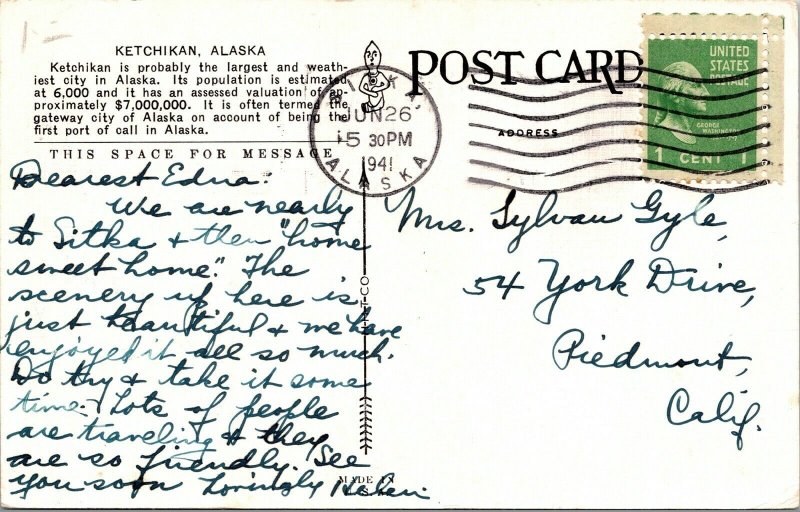 KETCHIKAN, ALASKA
Ketchikan is probably the largest and weath-
iest city in Alaska. Its population is estimated
at 6,000 and it has an assessed valuation of ap-
proximately $7,000,000. It is often termed the
gateway city of Alaska on account of being the
first port of call in Alaska.
THIS SPACE FOR MESSAGE
Dearest Edna:
We are nearly
to Sitka & then "home
sweet home". The
scenery up here is
just beautiful & we have
enjoyed it all so much.
Do try & take it some
time. Lots of people
are traveling & they
are so friendly. See
you soon Lovingly Helen
MADE IN
POST CARD
JUN 26
5 30PM
1941
ALASKA
ADDRESS
UNITED
STATES
POSTAGE
GEORGE
WASHINGTON
1 CENT 1
Mrs. Sylvan Gyle,
54 York Drive,
Piedmont,
Calif.